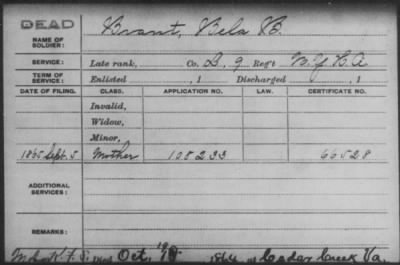 DEAD
NAME OF SOLDIER: Brant, Bela B.
SERVICE: Late rank, Co. L. 9 Reg't N.Y.H.A
TERM OF SERVICE: Enlisted , 1 Discharged , 1
DATE OF FILING. CLASS. APPLICATION NO. LAW. CERTIFICATE NO.
Invalid,
Widow,
Minor,
1865 Sept. 5 Mother 108233 66528
ADDITIONAL SERVICES:
REMARKS:
died Oct. 19 1864 at Cedar Creek Va.